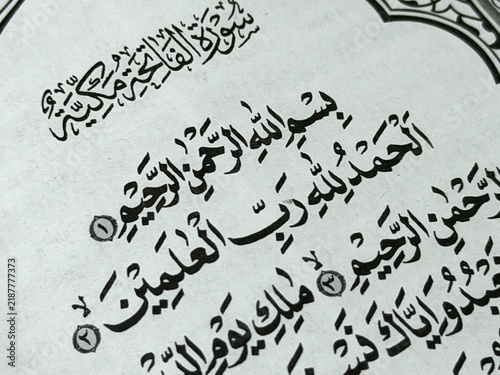 سُوْرَةُ الْفَاتِحَةِ مَكِّيَّةٌ
بِسْمِ اللّٰهِ الرَّحْمٰنِ الرَّحِيْمِ ١
اَلْحَمْدُ لِلّٰهِ رَبِّ الْعٰلَمِيْنَ ۙ ٢
الرَّحْمٰنِ الرَّحِيْمِ ۙ ٣ مٰلِكِ يَوْمِ
نَعْبُدُ وَاِيَّاكَ
Adobe Stock | #2187777373